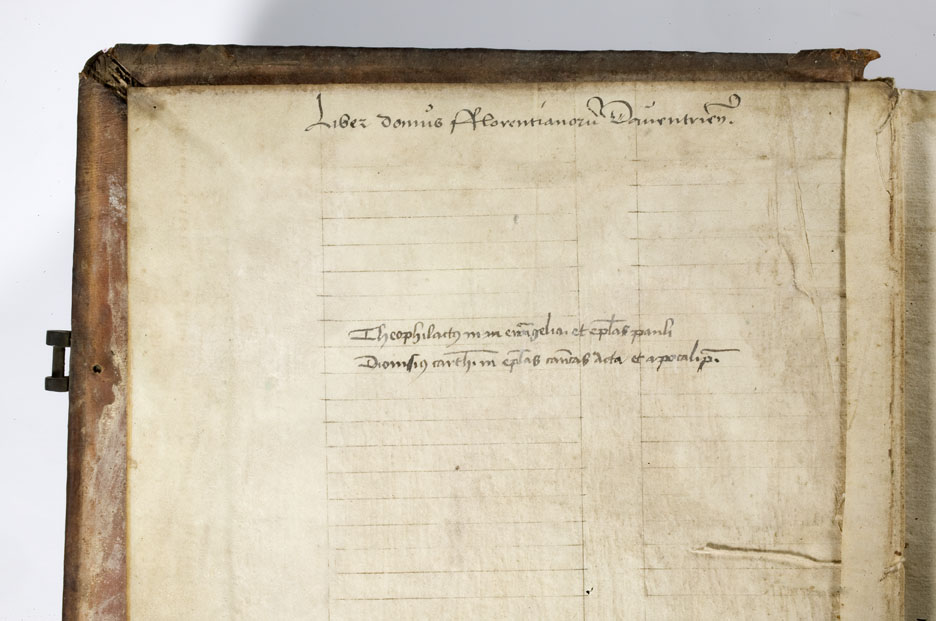 Liber domus fflorentianorū Dauentrieñ.
Theophilactꝯ in iiii euāgelia et ep̄las pauli
Dionisiꝯ carth. in ep̄las can̄cas Acta et apocalip̄.